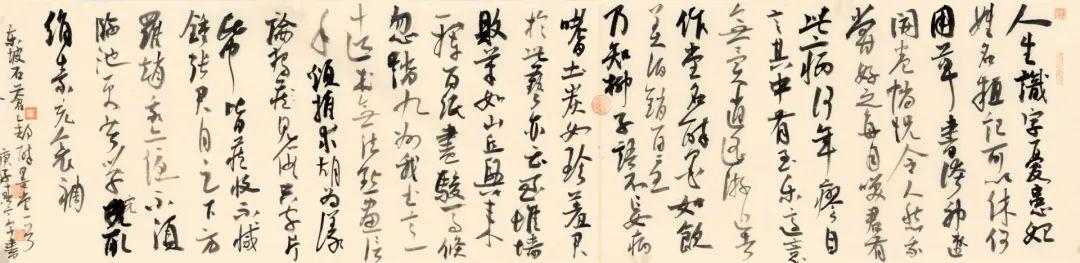 人生識字憂患始
姓名粗記可以休何
用草書誇神速
開卷惝怳令人愁我
嘗好之每自笑君有
此病何年瘳自
言其中有至樂適意
無異逍遙遊近者
作堂名醉墨如飲
美酒銷百憂
乃知柳子語不妄病
嗜土炭如珍羞君
於此藝亦云至堆墙
敗筆如山丘興來
一揮百紙盡駿馬倏
忽踏九州我書意
造本無法點畫信
手煩推求胡為議
論獨見假隻字片
紙皆藏收不減
鍾張君自足下方
羅趙我亦優不須
臨池更苦學完取
絹素充衾裯
東坡石蒼舒醉墨堂一首
庚子書